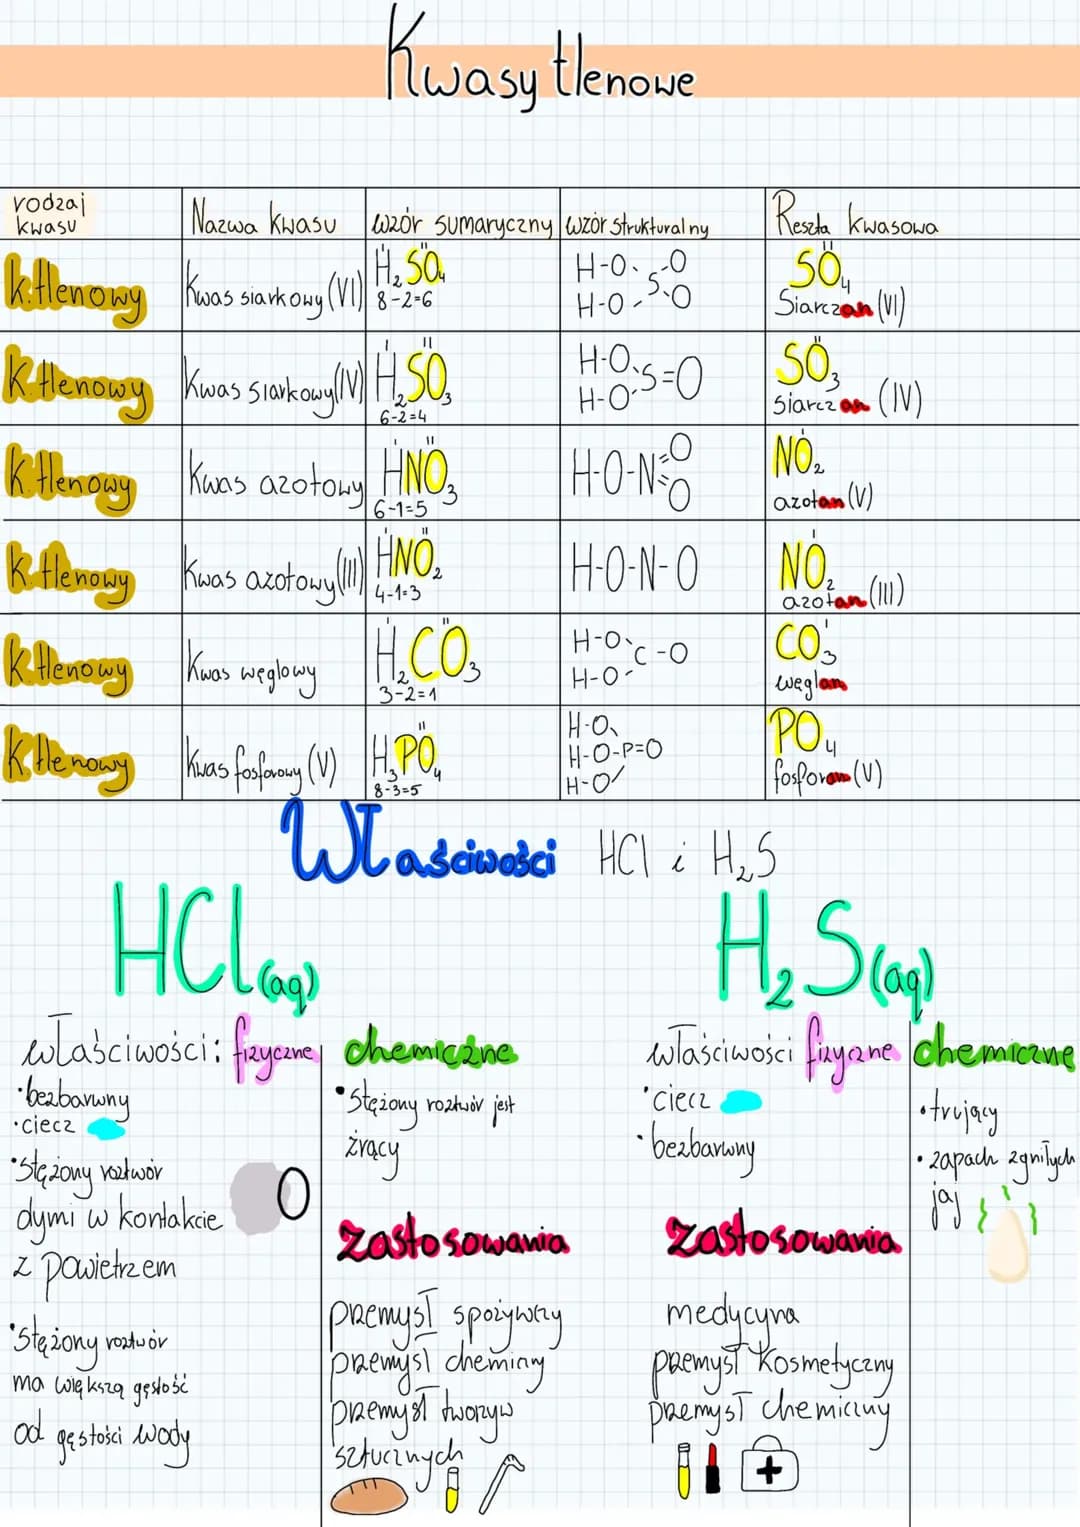 Kwasy tlenowe
rodzaj kwasu | Nazwa kwasu | wzór sumaryczny | wzór strukturalny | Reszta kwasowa
k.tlenowy | Kwas siarkowy (VI) | H₂SO₄ 8-2=6 | H-O S-O H-O O | SO₄ Siarczan (VI)
K.tlenowy | Kwas siarkowy (IV) | H₂SO₃ 6-2=4 | H-O S=O H-O | SO₃ siarczan (IV)
K.tlenowy | Kwas azotowy | HNO₃ 6-1=5 | H-O-N=O =O | NO₂ azotan (V)
K.tlenowy | Kwas azotowy (III) | HNO₂ 4-1=3 | H-O-N-O | NO₂ azotan (III)
K.tlenowy | Kwas węglowy | H₂CO₃ 3-2=1 | H-O C-O H-O | CO₃ węglan
K.tlenowy | Kwas fosforowy (V) | H₃PO₄ 8-3=5 | H-O H-O-P=O H-O | PO₄ fosforan (V)
Właściwości HCl i H₂S
HCl(aq)
właściwości: fizyczne
•bezbarwny
•ciecz
•Stężony roztwór
dymi w kontakcie
z powietrzem
•Stężony roztwór
ma większą gęstość
od gęstości wody
chemiczne
•Stężony roztwór jest
żrący
zastosowania
przemysł spożywczy
przemysł chemiczny
przemysł tworzyw
sztucznych
H₂S(aq)
właściwości fizyczne
•ciecz
•bezbarwny
zastosowania
medycyna
przemysł kosmetyczny
przemysł chemiczny
chemiczne
•trujący
•zapach zgniłych
jaj